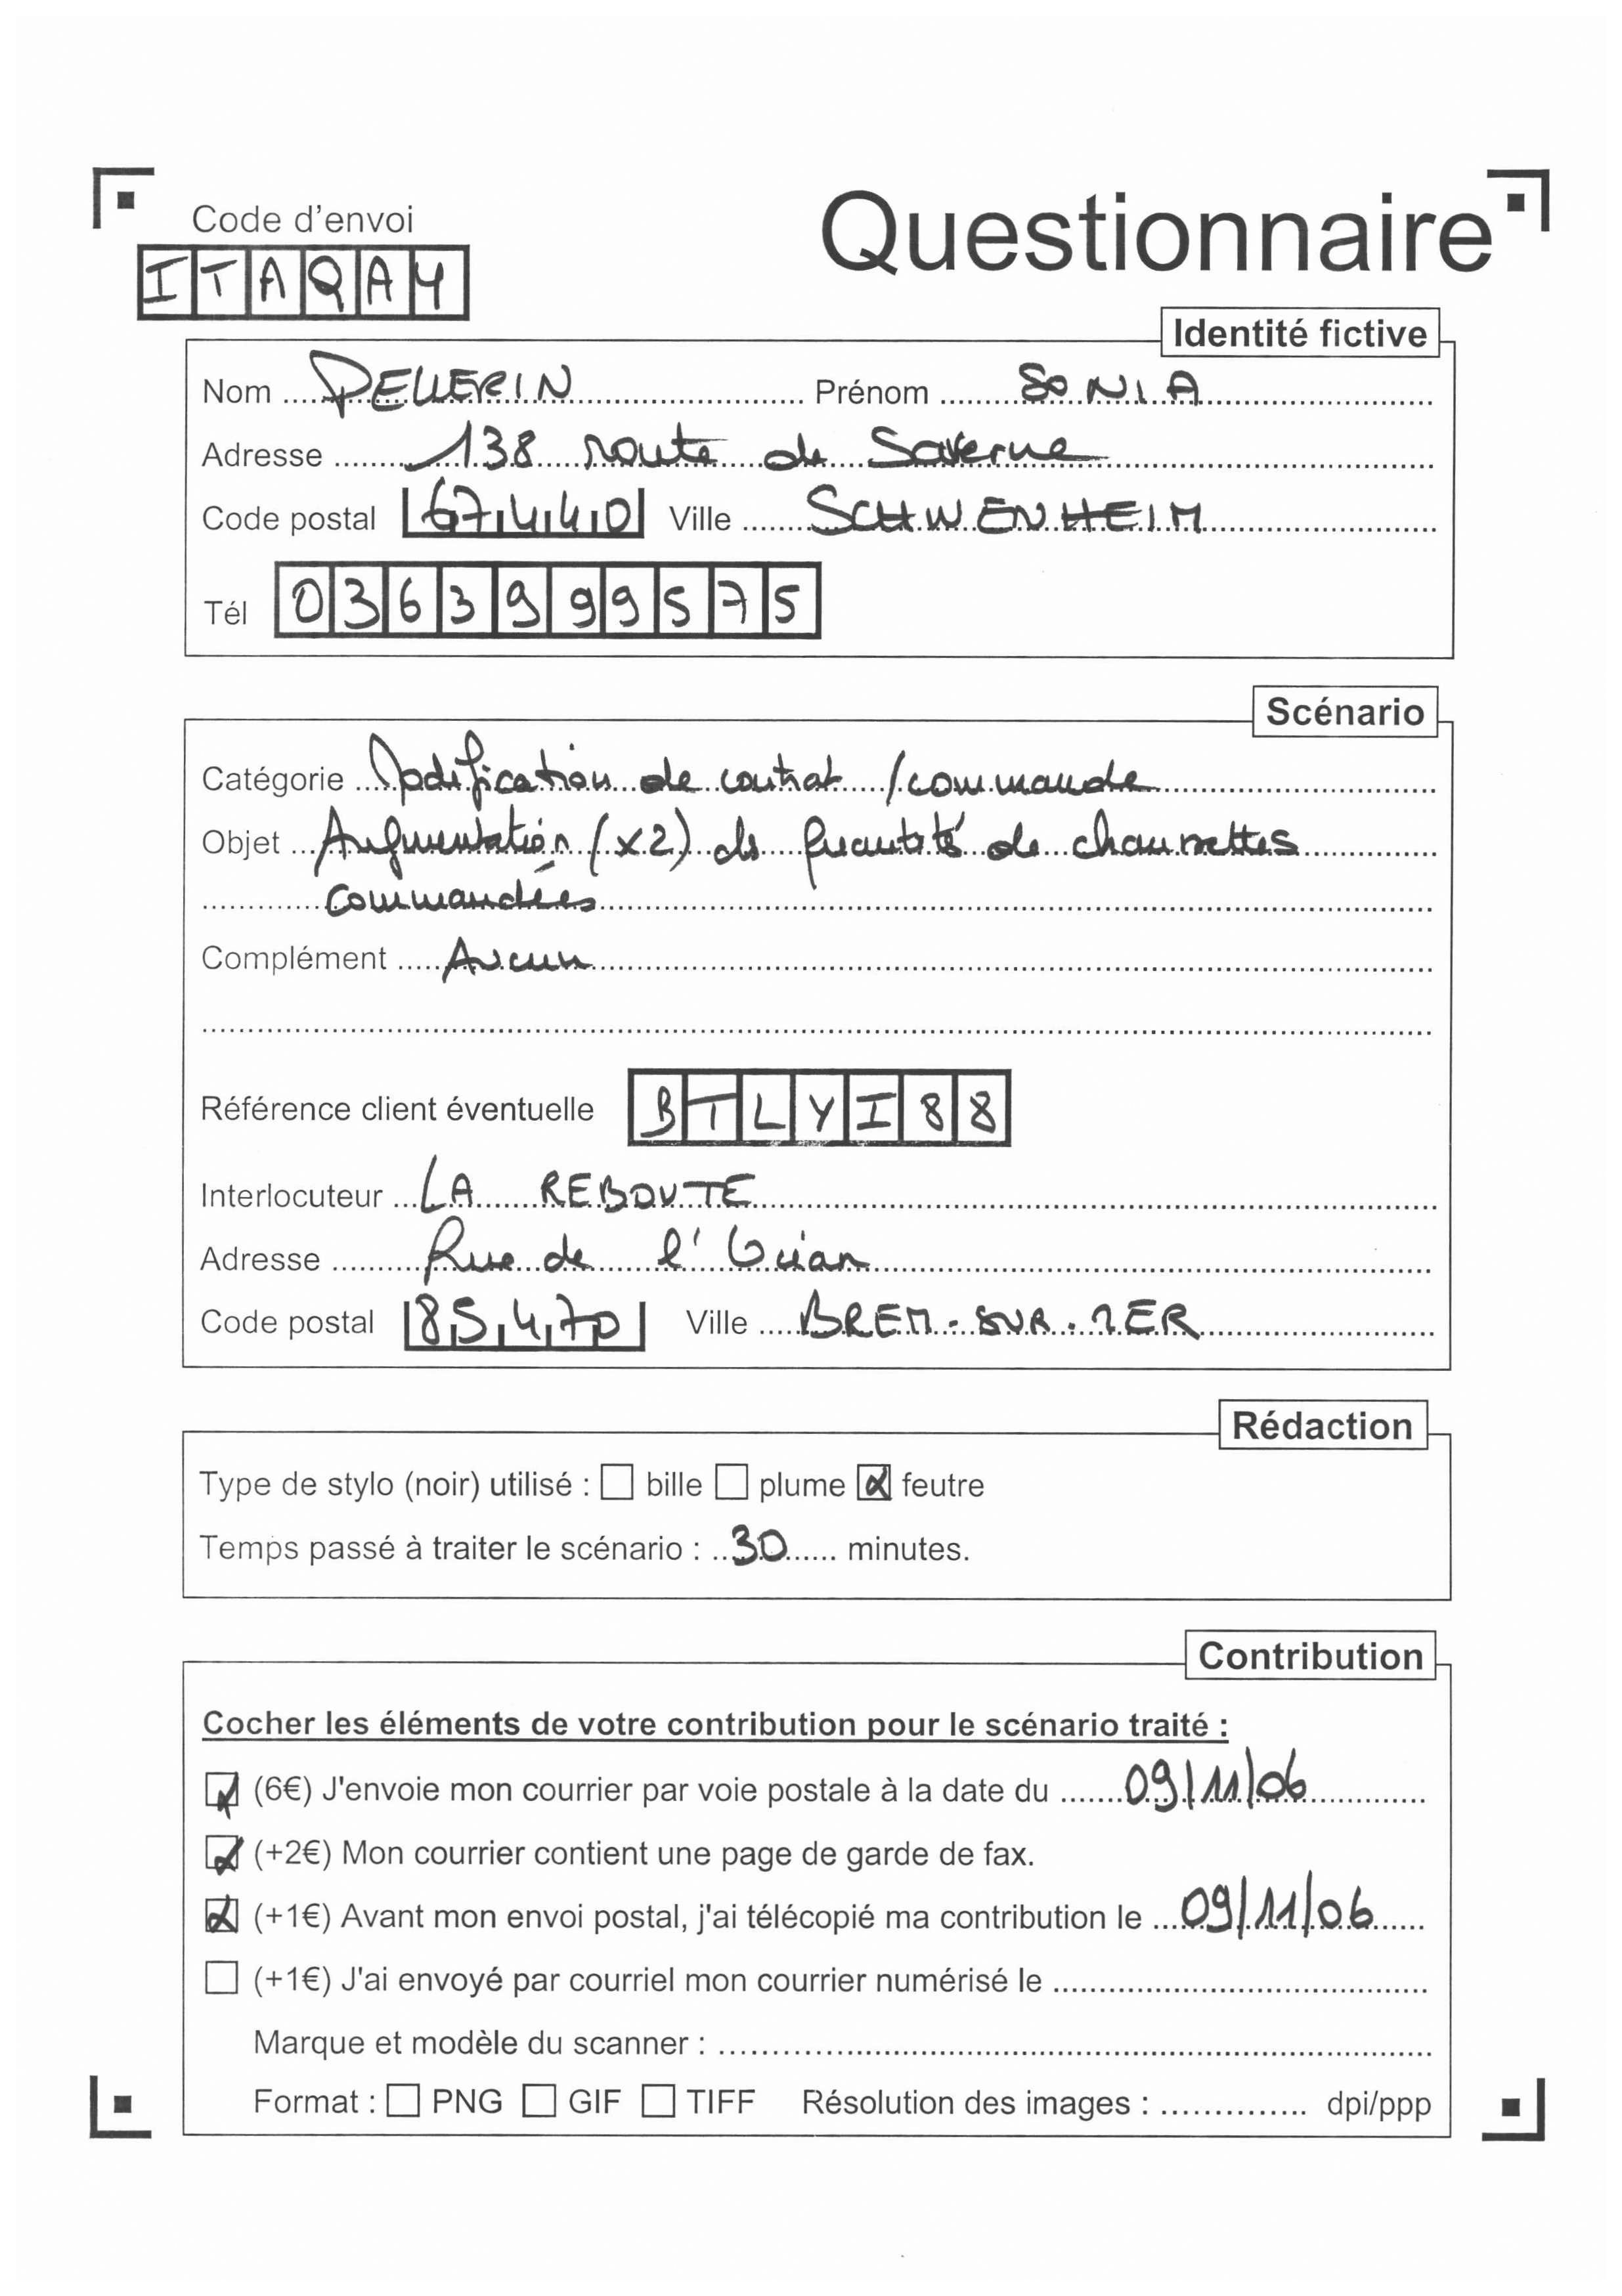 Questionnaire
Code d'envoi
ITAQAY
Identité fictive
Nom PELLERIN Prénom SONIA
Adresse 138 route de Saverne
Code postal 67440 Ville SCHWENHEIM
Tél 0363999575
Scénario
Catégorie Modification de contrat / commande
Objet Augmentation (x2) de quantité de chaussettes
commandées
Complément Aucun
Référence client éventuelle BTLYI88
Interlocuteur LA REBOUTE
Adresse Rue de l'
Code postal 85470 Ville BREM-SUR-MER
Rédaction
Type de stylo (noir) utilisé : ☐ bille ☐ plume ☒ feutre
Temps passé à traiter le scénario : 30 minutes.
Contribution
Cocher les éléments de votre contribution pour le scénario traité :
☒ (6€) J'envoie mon courrier par voie postale à la date du 09/11/06
☒ (+2€) Mon courrier contient une page de garde de fax.
☒ (+1€) Avant mon envoi postal, j'ai télécopié ma contribution le 09/11/06
☐ (+1€) J'ai envoyé par courriel mon courrier numérisé le
Marque et modèle du scanner :
Format : ☐ PNG ☐ GIF ☐ TIFF Résolution des images : dpi/ppp